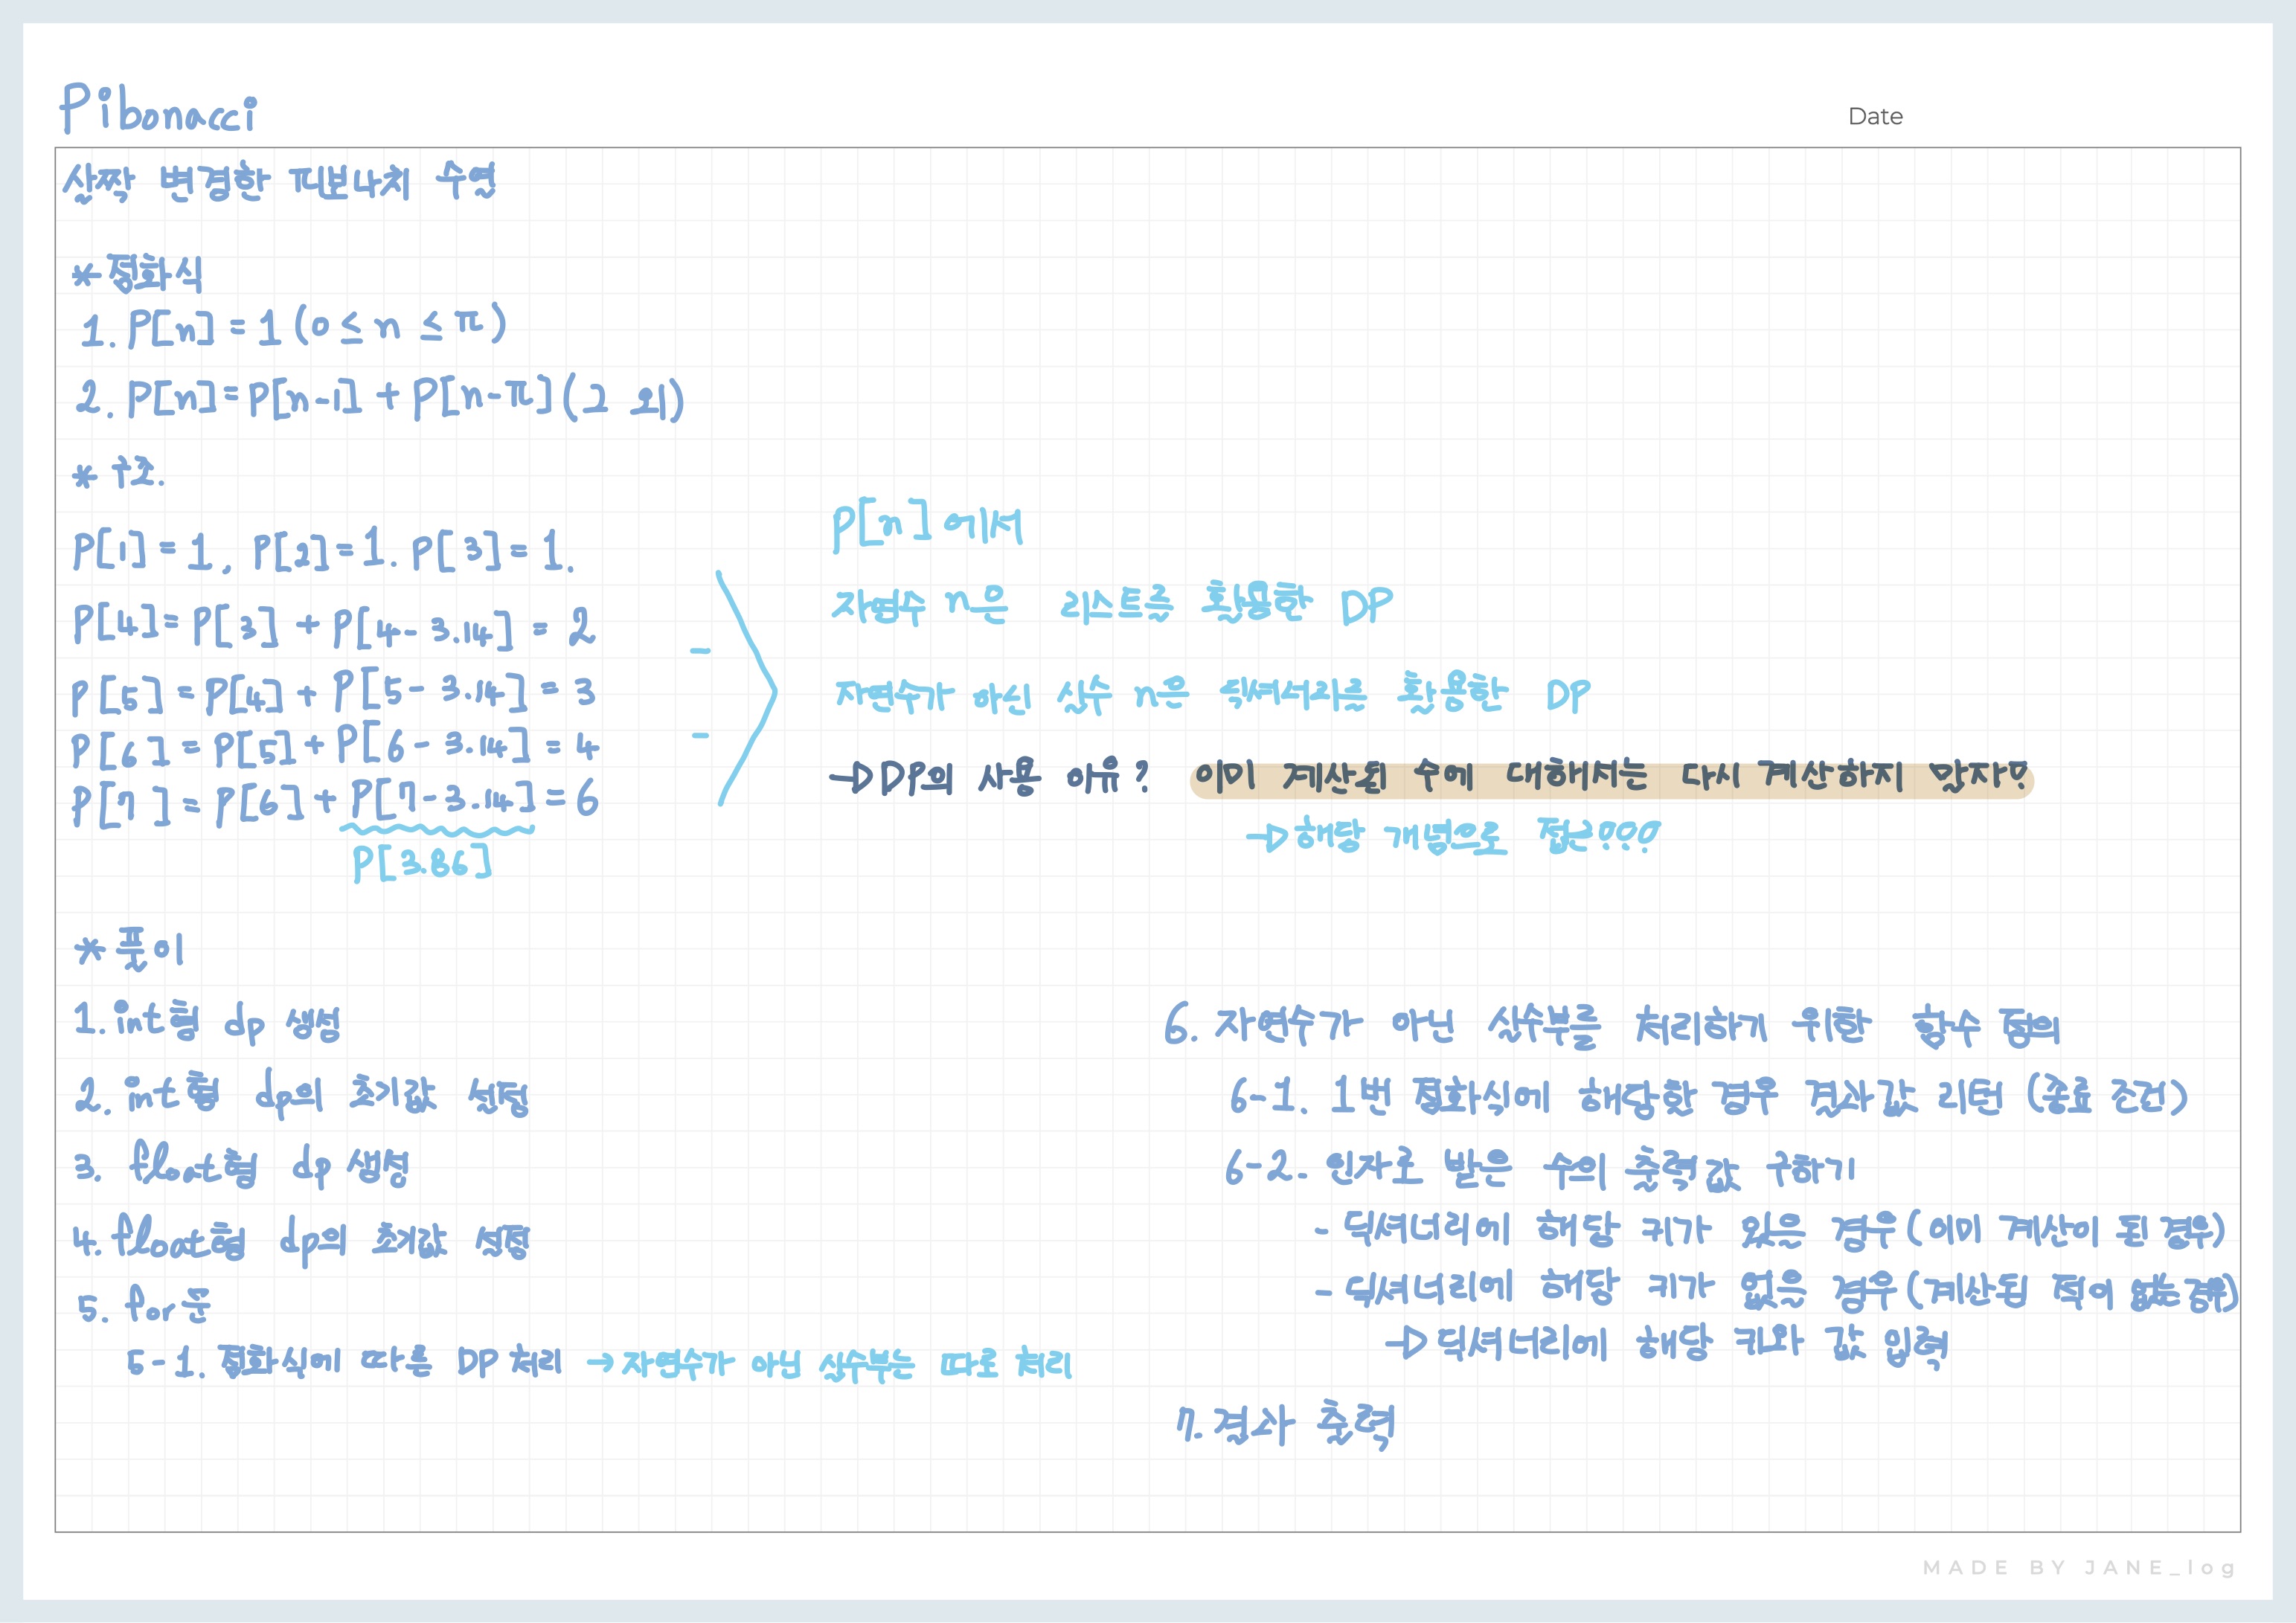 Pibonacci
Date
살짝 변경한 피보나치 수열
* 점화식
1. P[n] = 1 (0 ≤ n ≤ π)
2. P[n] = P[n-1] + P[n-π] (그 외)
P[1] = 1, P[2] = 1. P[3] = 1.
P[4] = P[3] + P[4-3.14] = 2
P[5] = P[4] + P[5-3.14] = 3
P[6] = P[5] + P[6-3.14] = 4
P[7] = P[6] + P[7-3.14] = 6
P[3.86]
P[n]에서
자연수 n은 리스트를 활용한 DP
자연수가 아닌 실수 n은 딕셔너리를 활용한 DP
→ DP의 사용 이유? 이미 계산된 수에 대해서는 다시 계산하지 말자!
→ 해당 개념으로 접근!!!
* 풀이
1. int형 dp 생성
2. int형 dp의 초기값 설정
3. float형 dp 생성
4. float형 dp의 초기값 설정
5. for문
5-1. 점화식에 따른 DP 처리 → 자연수가 아닌 실수부는 따로 처리
6. 자연수가 아닌 실수부를 처리하기 위한 함수 정의
6-1. 1번 점화식에 해당할 경우 결과값 리턴 (종료 조건)
6-2. 인자로 받은 수의 출력값 구하기
- 딕셔너리에 해당 키가 있을 경우 (이미 계산이 된 경우)
- 딕셔너리에 해당 키가 없을 경우 (계산된 적이 없는 경우)
→ 딕셔너리에 해당 키와 값 입력
7. 결과 출력
MADE BY JANE_log